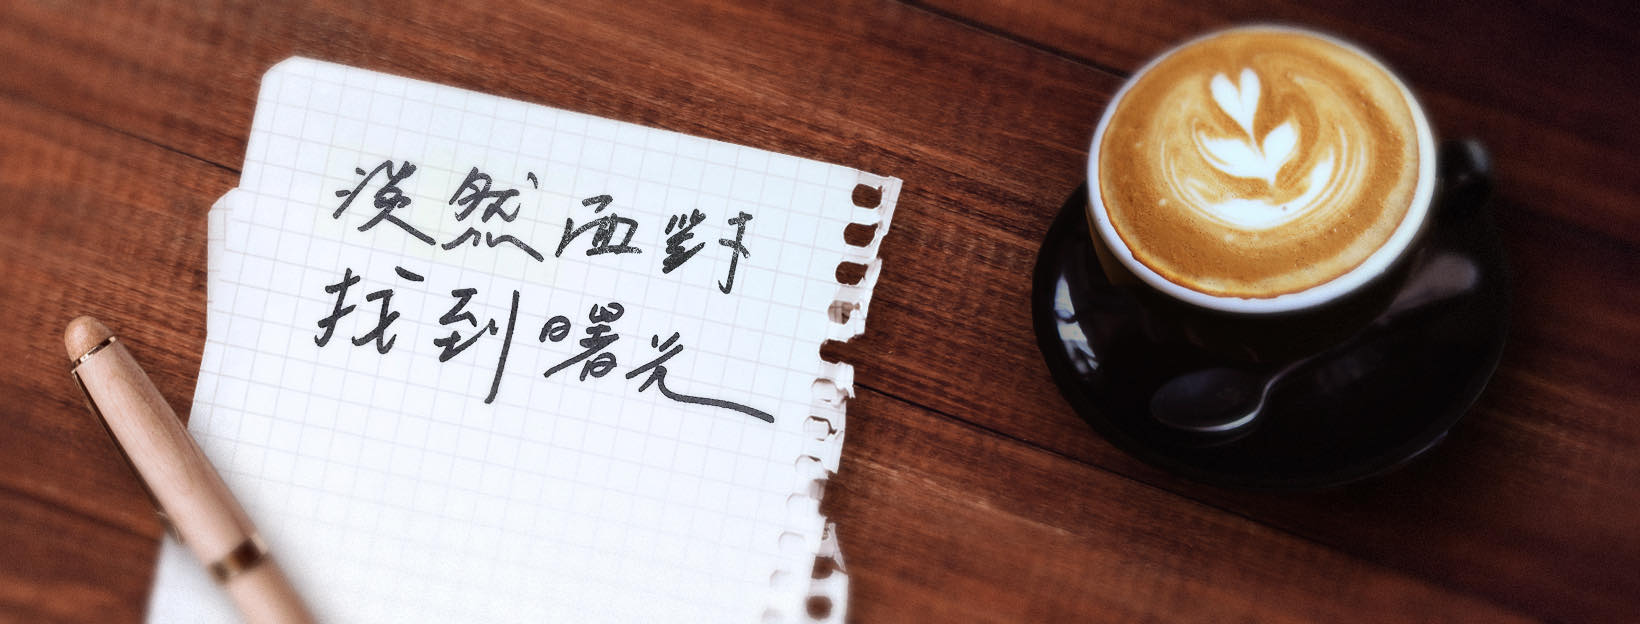 淡然面對
找到曙光